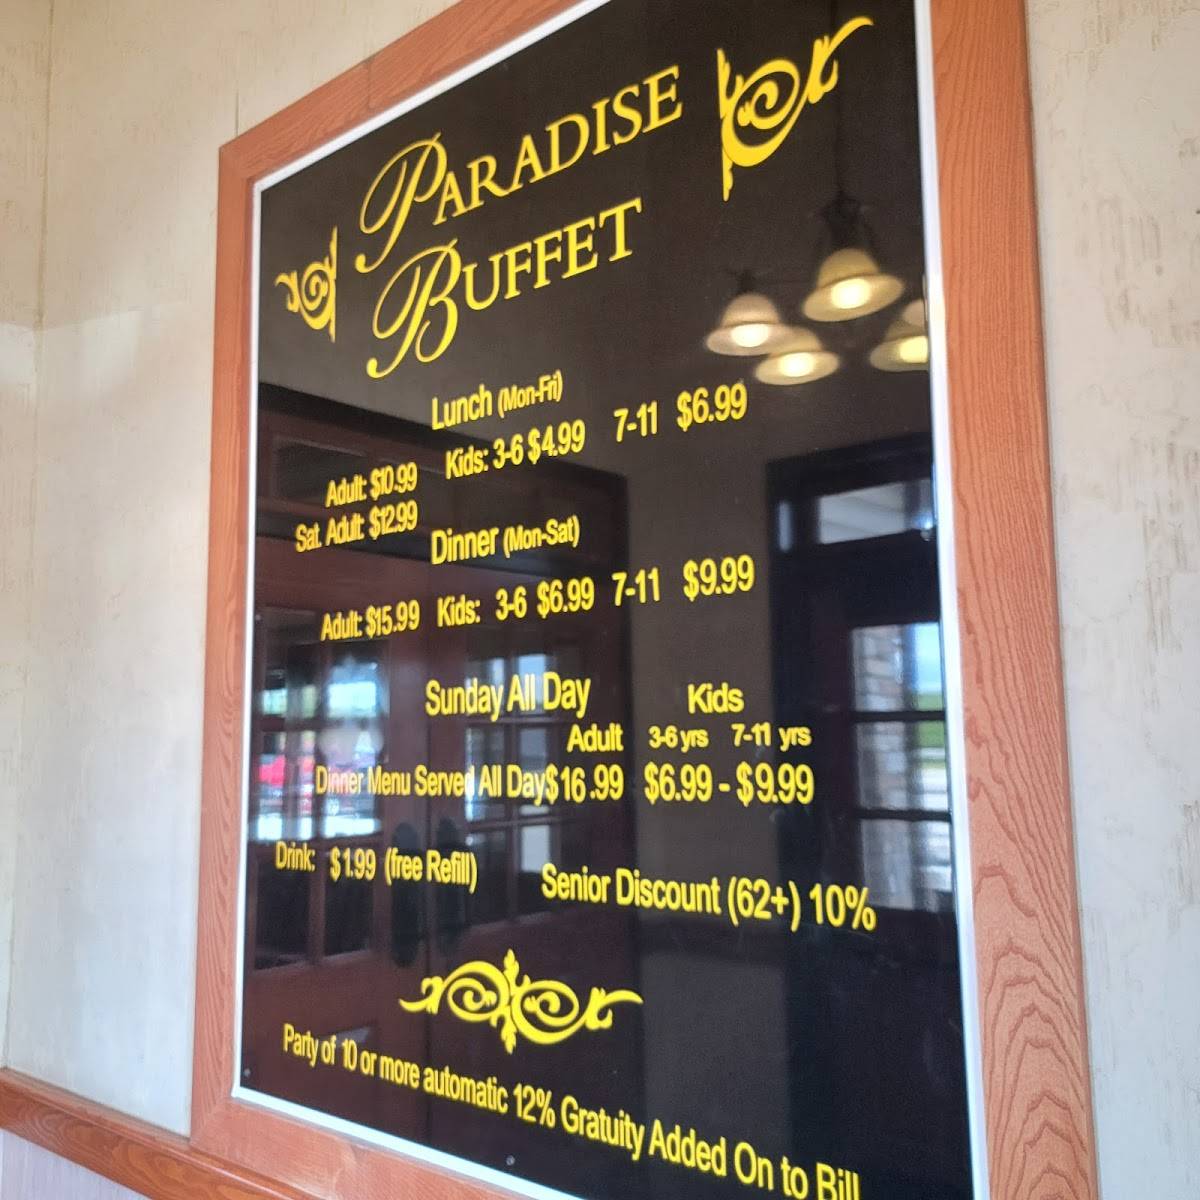 PARADISE
BUFFET
Lunch (Mon-Fri)
Adult: $10.99 Kids: 3-6 $4.99 7-11 $6.99
Sat. Adult: $12.99
Dinner (Mon-Sat)
Adult: $15.99 Kids: 3-6 $6.99 7-11 $9.99
Sunday All Day Kids
Adult 3-6 yrs 7-11 yrs
Dinner Menu Served All Day $16.99 $6.99 - $9.99
Drink: $1.99 (free Refill)
Senior Discount (62+) 10%
Party of 10 or more automatic 12% Gratuity Added On to Bill